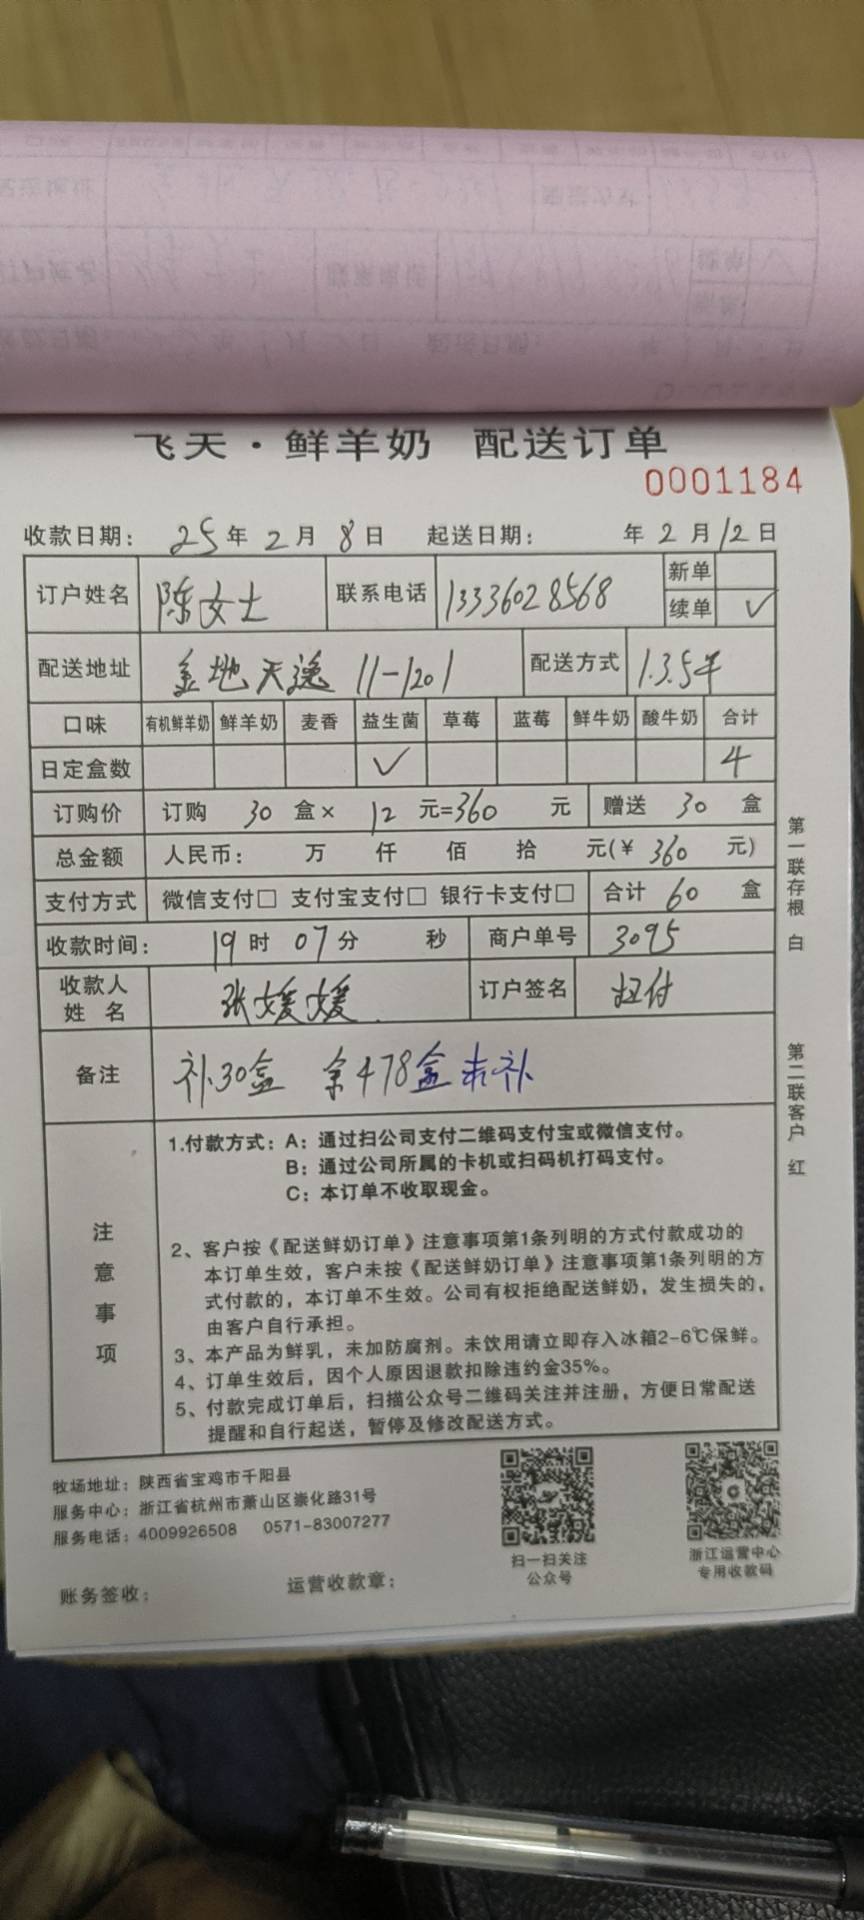 飞天·鲜羊奶 配送订单
0001184
收款日期: 25年2月8日 起送日期: 年2月12日
订户姓名 陈女士 联系电话 13336028568 新单
续单 ✓
配送地址 金地天逸 11-1201 配送方式 1.3.5午
口味 有机鲜羊奶 鲜羊奶 麦香 益生菌 草莓 蓝莓 鲜牛奶 酸牛奶 合计
日定盒数 ✓ 4
订购价 订购 30 盒× 12 元=360 元 赠送 30 盒
总金额 人民币: 万 仟 佰 拾 元(¥ 360 元)
支付方式 微信支付□ 支付宝支付□ 银行卡支付□ 合计 60 盒
收款时间: 19时07分 秒 商户单号 3095
收款人
姓 名 张媛媛 订户签名 扫付
备注 补30盒 余478盒未补
注意事项
1.付款方式: A: 通过扫公司支付二维码支付宝或微信支付。
B: 通过公司所属的卡机或扫码机打码支付。
C: 本订单不收取现金。
2、客户按《配送鲜奶订单》注意事项第1条列明的方式付款成功的
本订单生效，客户未按《配送鲜奶订单》注意事项第1条列明的方
式付款的，本订单不生效。公司有权拒绝配送鲜奶，发生损失的，
由客户自行承担。
3、本产品为鲜乳，未加防腐剂。未饮用请立即存入冰箱2-6℃保鲜。
4、订单生效后，因个人原因退款扣除违约金35%。
5、付款完成订单后，扫描公众号二维码关注并注册，方便日常配送
提醒和自行起送，暂停及修改配送方式。
第一联存根 白
第二联客户 红
牧场地址: 陕西省宝鸡市千阳县
服务中心: 浙江省杭州市萧山区崇化路31号
服务电话: 4009926508 0571-83007277
扫一扫关注
公众号
浙江运营中心
专用收款码
账务签收: 运营收款章: